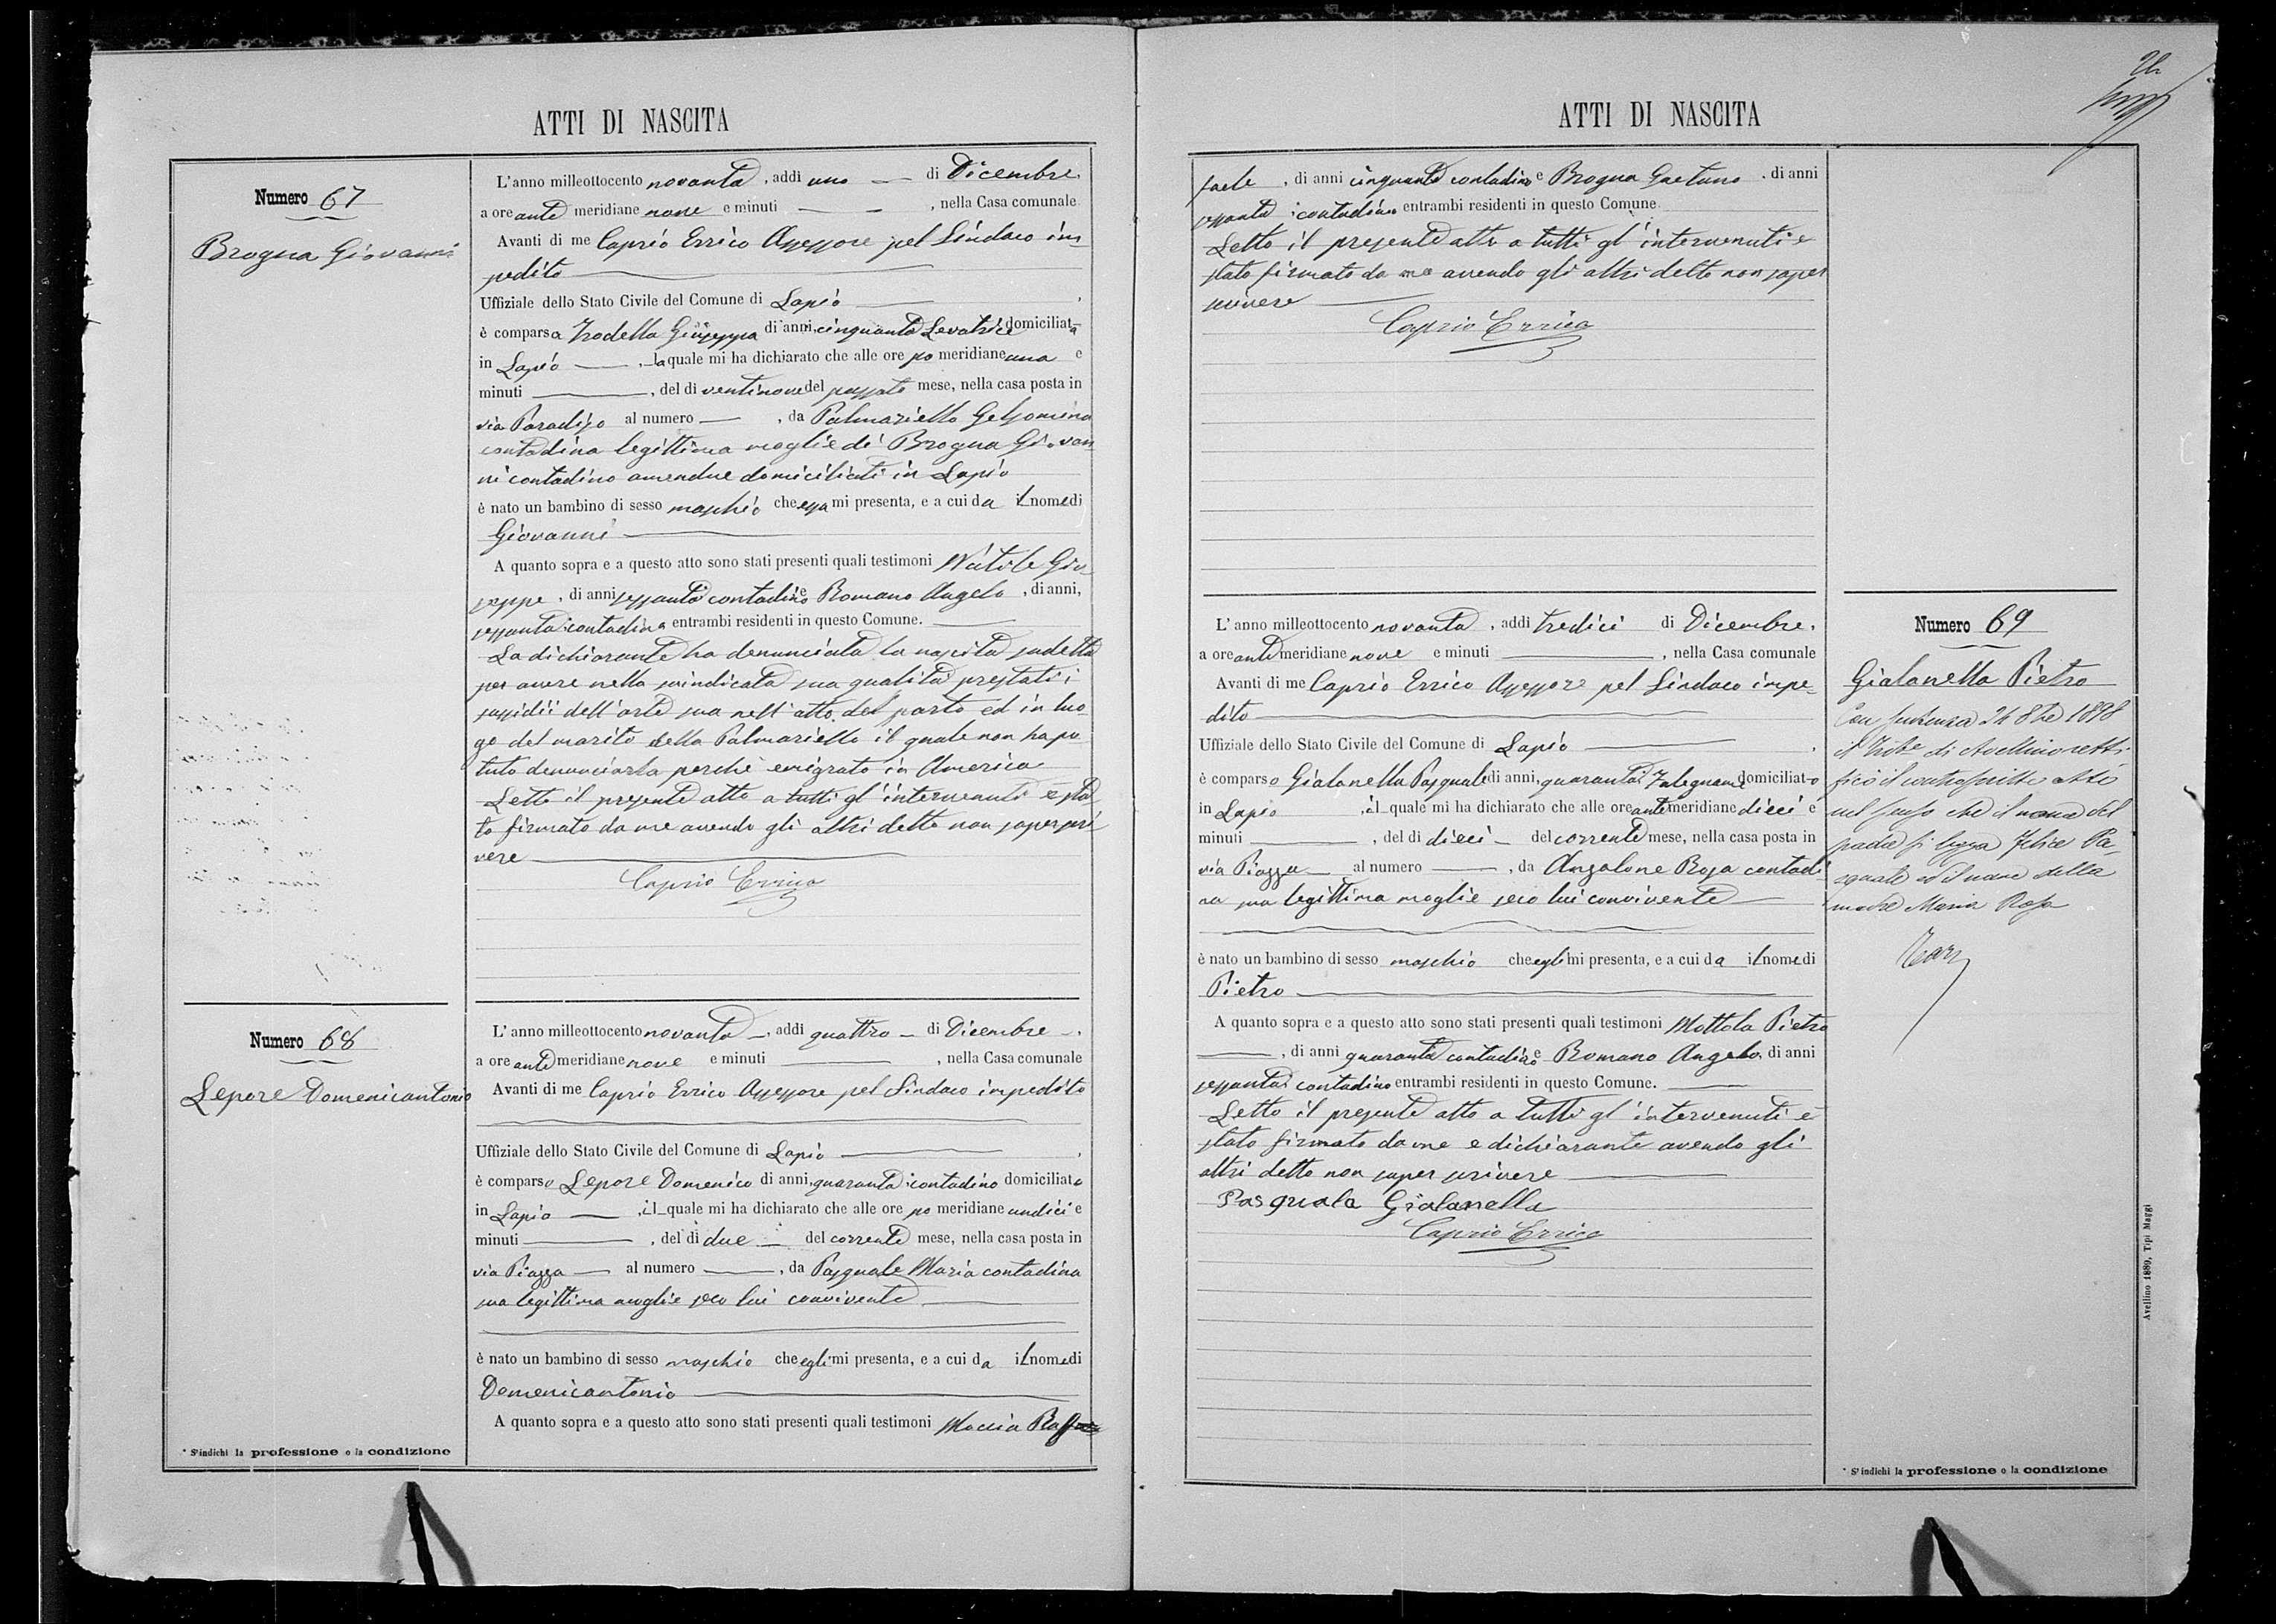 ATTI DI NASCITA
Numero 67
Brogna Giovanni
L'anno milleottocento novanta, addi uno — di Dicembre
a ore ante meridiane nove e minuti — , nella Casa comunale.
Avanti di me Caprio Errico Assessore pel Sindaco im
pedito
Uffiziale dello Stato Civile del Comune di Lapio ,
è comparsa Giuseppa di anni, cinquanta Levatrice domiciliata
in Lapio — , la quale mi ha dichiarato che alle ore po meridiane una e
minuti — , del di ventinove del passato mese, nella casa posta in
via Paradiso al numero — , da Palmariello Gelsomina
contadina legittima moglie di Brogna Giovan
ni contadino amendue domiciliati in Lapio
è nato un bambino di sesso maschio che essa mi presenta, e a cui da il nome di
Giovanni
A quanto sopra e a questo atto sono stati presenti quali testimoni Natale Giu
seppe, di anni sessanta contadino e Romano Angelo, di anni,
sessanta contadino entrambi residenti in questo Comune.
La dichiarante ha denunciata la nascita sudetta
per avere nella suindicata sua qualità prestati i
sussidii dell'arte sua nell'atto del parto ed in luo
go del marito della Palmariello il quale non ha po
tuto denunciarla perchè emigrato in America
Letto il presente atto a tutti gl'intervenuti è sta
to firmato da me avendo gli altri detto non saper scri
vere
Caprio Errico
Numero 68
Lepore Domenicantonio
L'anno milleottocento novanta —, addi quattro — di Dicembre —.
a ore ante meridiane nove e minuti — , nella Casa comunale
Avanti di me Caprio Errico Assessore pel Sindaco impedito
Uffiziale dello Stato Civile del Comune di Lapio ,
è comparso Lepore Domenico di anni, quaranta contadino domiciliato
in Lapio — , il quale mi ha dichiarato che alle ore po meridiane undici e
minuti — , del di due — del corrente mese, nella casa posta in
via Piazza — al numero — , da Pasquale Maria contadina
sua legittima moglie seco lui convivente
è nato un bambino di sesso maschio che egli mi presenta, e a cui da il nome di
Domenicantonio
A quanto sopra e a questo atto sono stati presenti quali testimoni Moccia Raff
* S'indichi la professione o la condizione
ATTI DI NASCITA
faele, di anni cinquanta contadino e Brogna Gaetano, di anni
sessanta contadino entrambi residenti in questo Comune.
Letto il presente atto a tutti gl'intervenuti è
stato firmato da me avendo gli altri detto non saper
scrivere
Caprio Errico
L'anno milleottocento novanta, addi tredici di Dicembre,
a ore ante meridiane nove e minuti — , nella Casa comunale
Avanti di me Caprio Errico Assessore pel Sindaco impe
dito
Uffiziale dello Stato Civile del Comune di Lapio ,
è comparso Gialanella Pasquale di anni, quaranta Falegname domiciliato
in Lapio , il quale mi ha dichiarato che alle ore ante meridiane dieci e
minuti — , del di dieci — del corrente mese, nella casa posta in
via Piazza al numero — , da Anzalone Rosa contadi
na sua legittima moglie seco lui convivente
è nato un bambino di sesso maschio che egli mi presenta, e a cui da il nome di
Pietro
A quanto sopra e a questo atto sono stati presenti quali testimoni Mottola Pietro
— , di anni quaranta contadino e Romano Angelo, di anni
sessanta contadino entrambi residenti in questo Comune.
Letto il presente atto a tutti gl'intervenuti è
stato firmato da me e dichiarante avendo gli
altri detto non saper scrivere
Pasquale Gialanella
Caprio Errico
Numero 69
Gialanella Pietro
Con sentenza 26 8bre 1898
il Trible di Avellino retti
ficò il controscritto atto
nel senso che il nome del
padre si legga Felice Pa-
squale ed il nome della
madre Maria Rosa
* S'indichi la professione o la condizione
Avellino 1889, Tipi Maggi